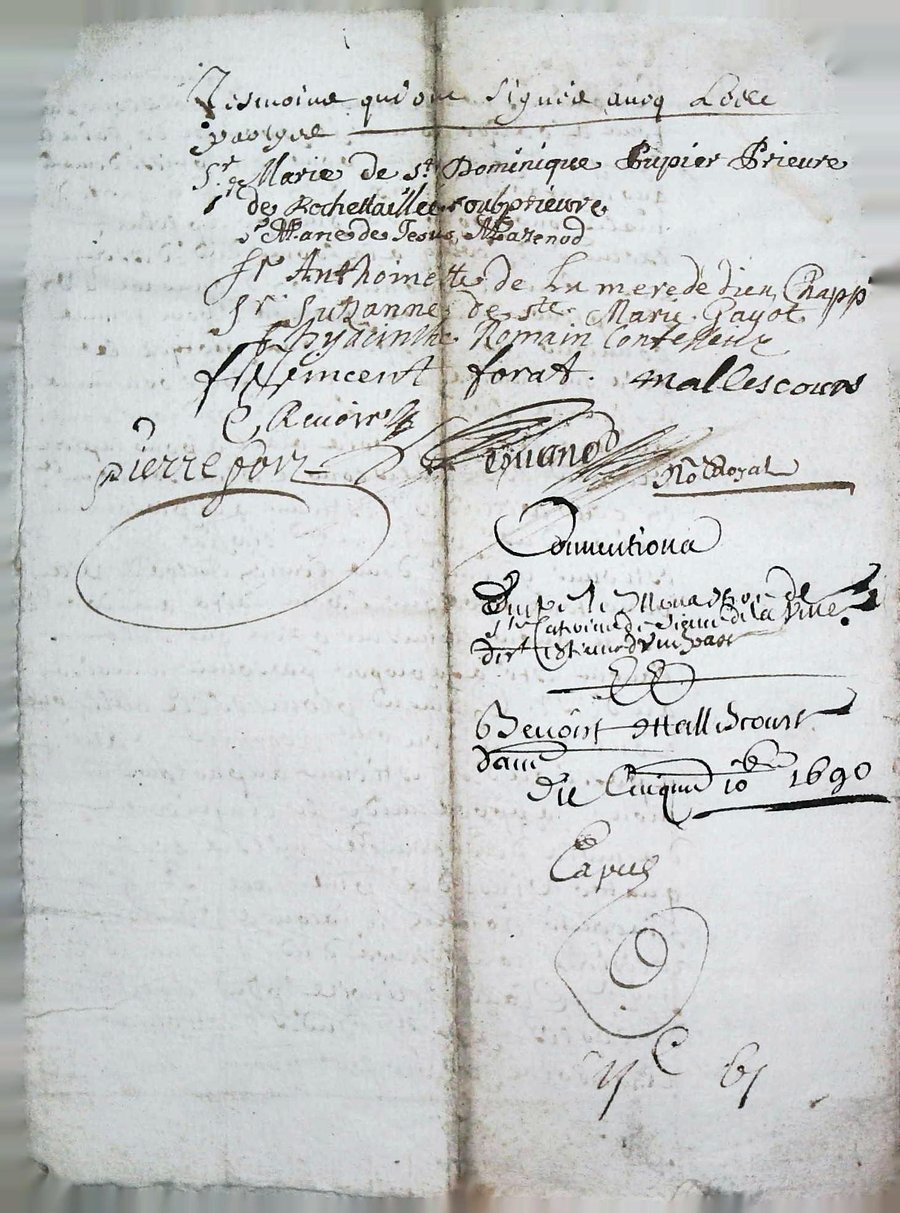 Tesmoins qui ont signés avecq Lesd
partyes
Sr Marie de St Dominique Pupier Prieure
Sr de Rochettaillee soubprieure
Sr Marie de Jesus Mazenod
Sr Anthoinette de La mere de dieu Chapp
Sr Suzanne de ste Marie Gayot
f hyacinthe Romain Confesseur
f Vincent forat. mallescours
C Ravoir
pierre gon
No Royal
Conventions
Entre le Monastere de
Ste Catherine de Sienne de la Ville
de St Estienne d'une part
Benoist Mallescourt
d'autre
Du Cinquie 10bre 1690